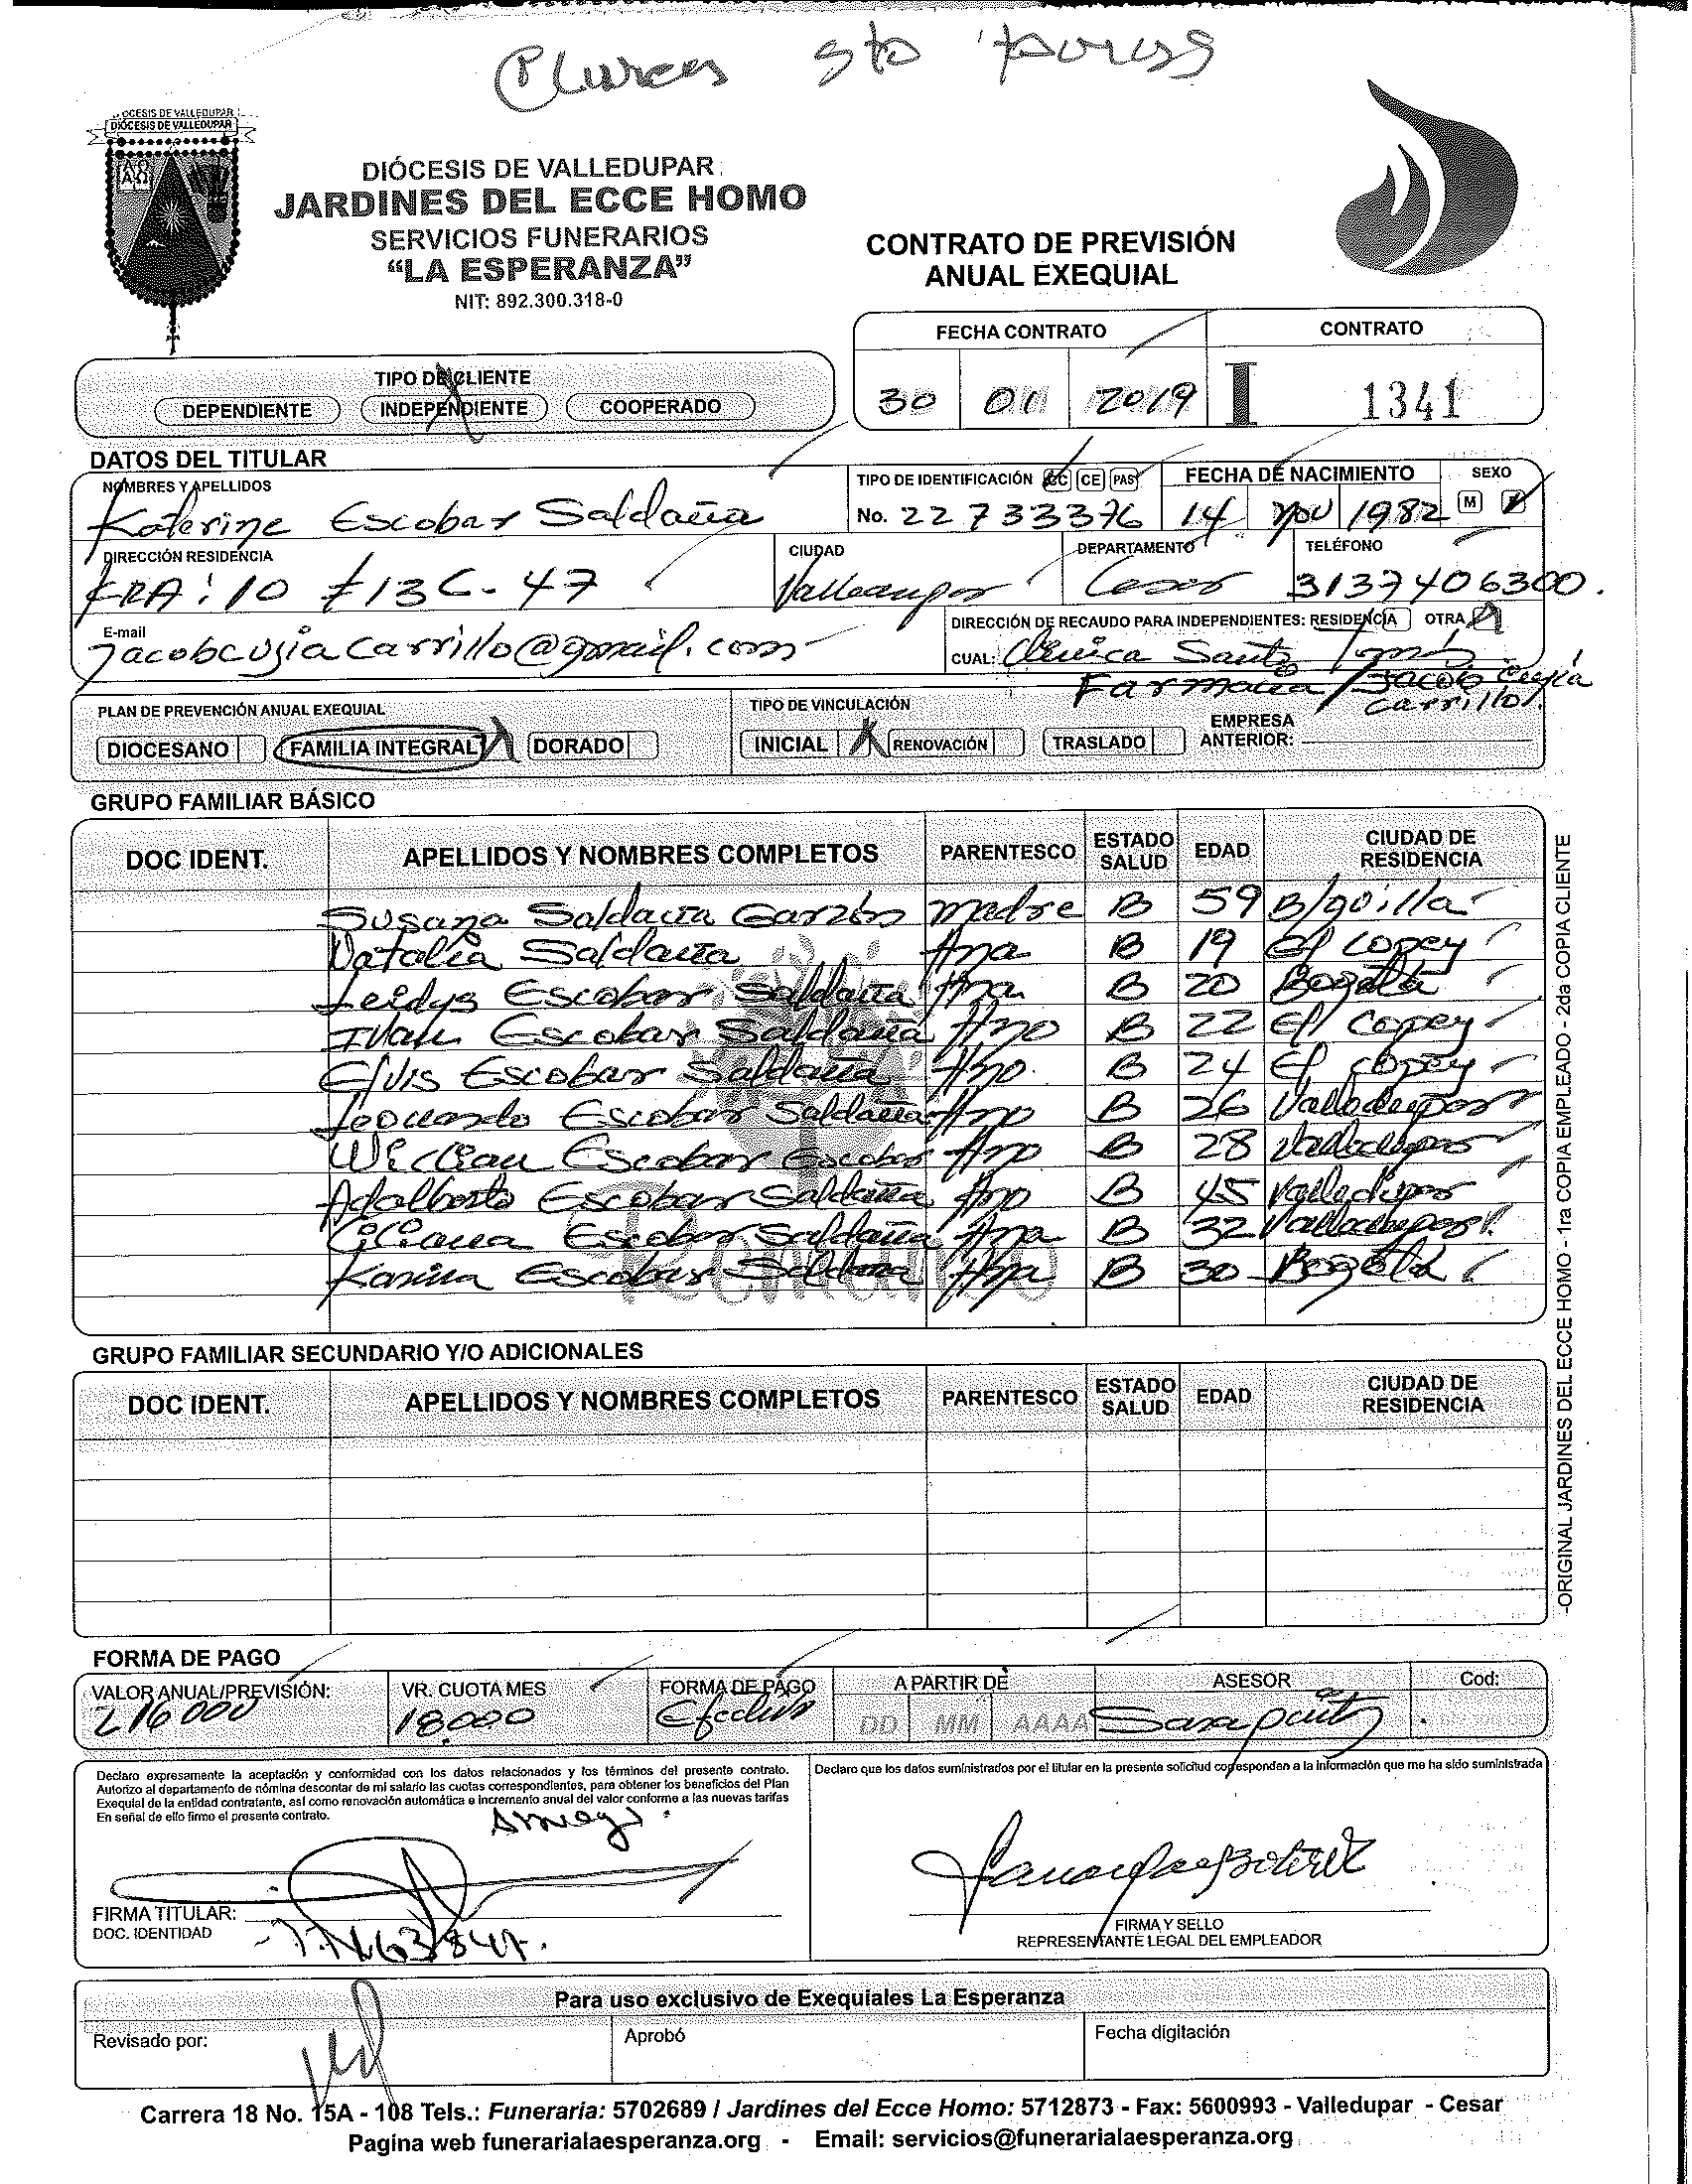 Sto tomas
DIÓCESIS DE VALLEDUPAR
DIÓCESIS DE VALLEDUPAR
JARDINES DEL ECCE HOMO
SERVICIOS FUNERARIOS
"LA ESPERANZA"
NIT: 892.300.318-0
CONTRATO DE PREVISIÓN
ANUAL EXEQUIAL
FECHA CONTRATO CONTRATO
30 01 2019 I 1341
TIPO DE CLIENTE
DEPENDIENTE INDEPENDIENTE COOPERADO
DATOS DEL TITULAR
NOMBRES Y APELLIDOS TIPO DE IDENTIFICACIÓN CC CE PAS FECHA DE NACIMIENTO SEXO
Katerine Escobar Saldaña No. 22733376 14 Nov 1982 M F
DIRECCIÓN RESIDENCIA CIUDAD DEPARTAMENTO TELÉFONO
KRA: 10 #13C-47 Valledupar Cesar 3137406300.
E-mail DIRECCIÓN DE RECAUDO PARA INDEPENDIENTES: RESIDENCIA OTRA
jacobcujiacarrillo@gmail.com CUAL: Clinica Santo Tomas
Farmacia / Jacob Cujia
Carrillo
PLAN DE PREVENCIÓN ANUAL EXEQUIAL TIPO DE VINCULACIÓN
DIOCESANO FAMILIA INTEGRAL DORADO INICIAL RENOVACIÓN TRASLADO EMPRESA ANTERIOR:
GRUPO FAMILIAR BÁSICO
DOC IDENT. APELLIDOS Y NOMBRES COMPLETOS PARENTESCO ESTADO SALUD EDAD CIUDAD DE RESIDENCIA
Susana Saldaña Garzón madre B 59 B/quilla
Natalia Saldaña Hna B 19 El Copey
Leidys Escobar Saldaña Hna B 20 Bogotá
Ivan Escobar Saldaña Hno B 22 El Copey
Elvis Escobar Saldaña Hno B 24 El Copey
Leonardo Escobar Saldaña Hno B 26 Valledupar
William Escobar Escobar Hno B 28 Valledupar
Adalberto Escobar Saldaña Hno B 45 Valledupar
Liliana Escobar Saldaña Hna B 32 Valledupar
Karina Escobar Saldaña Hna B 30 Bogotá
GRUPO FAMILIAR SECUNDARIO Y/O ADICIONALES
DOC IDENT. APELLIDOS Y NOMBRES COMPLETOS PARENTESCO ESTADO SALUD EDAD CIUDAD DE RESIDENCIA
FORMA DE PAGO
VALOR ANUAL/PREVISIÓN: VR. CUOTA MES FORMA DE PAGO A PARTIR DE ASESOR Cod:
216000 18.000 Efectivo DD MM AAAA Sara
Declaro expresamente la aceptación y conformidad con los datos relacionados y los términos del presente contrato.
Autorizo al departamento de nómina descontar de mi salario las cuotas correspondientes, para obtener los beneficios del Plan
Exequial de la entidad contratante, así como renovación automática e incremento anual del valor conforme a las nuevas tarifas
En señal de ello firmo el presente contrato.
Declaro que los datos suministrados por el titular en la presente solicitud corresponden a la información que me ha sido suministrada
FIRMA TITULAR:
DOC. IDENTIDAD
FIRMA Y SELLO
REPRESENTANTE LEGAL DEL EMPLEADOR
Para uso exclusivo de Exequiales La Esperanza
Revisado por: Aprobó Fecha digitación
Carrera 18 No. 15A - 108 Tels.: Funeraria: 5702689 / Jardines del Ecce Homo: 5712873 - Fax: 5600993 - Valledupar - Cesar
Pagina web funerarialaesperanza.org - Email: servicios@funerarialaesperanza.org
-ORIGINAL JARDINES DEL ECCE HOMO - 1ra COPIA EMPLEADO - 2da COPIA CLIENTE